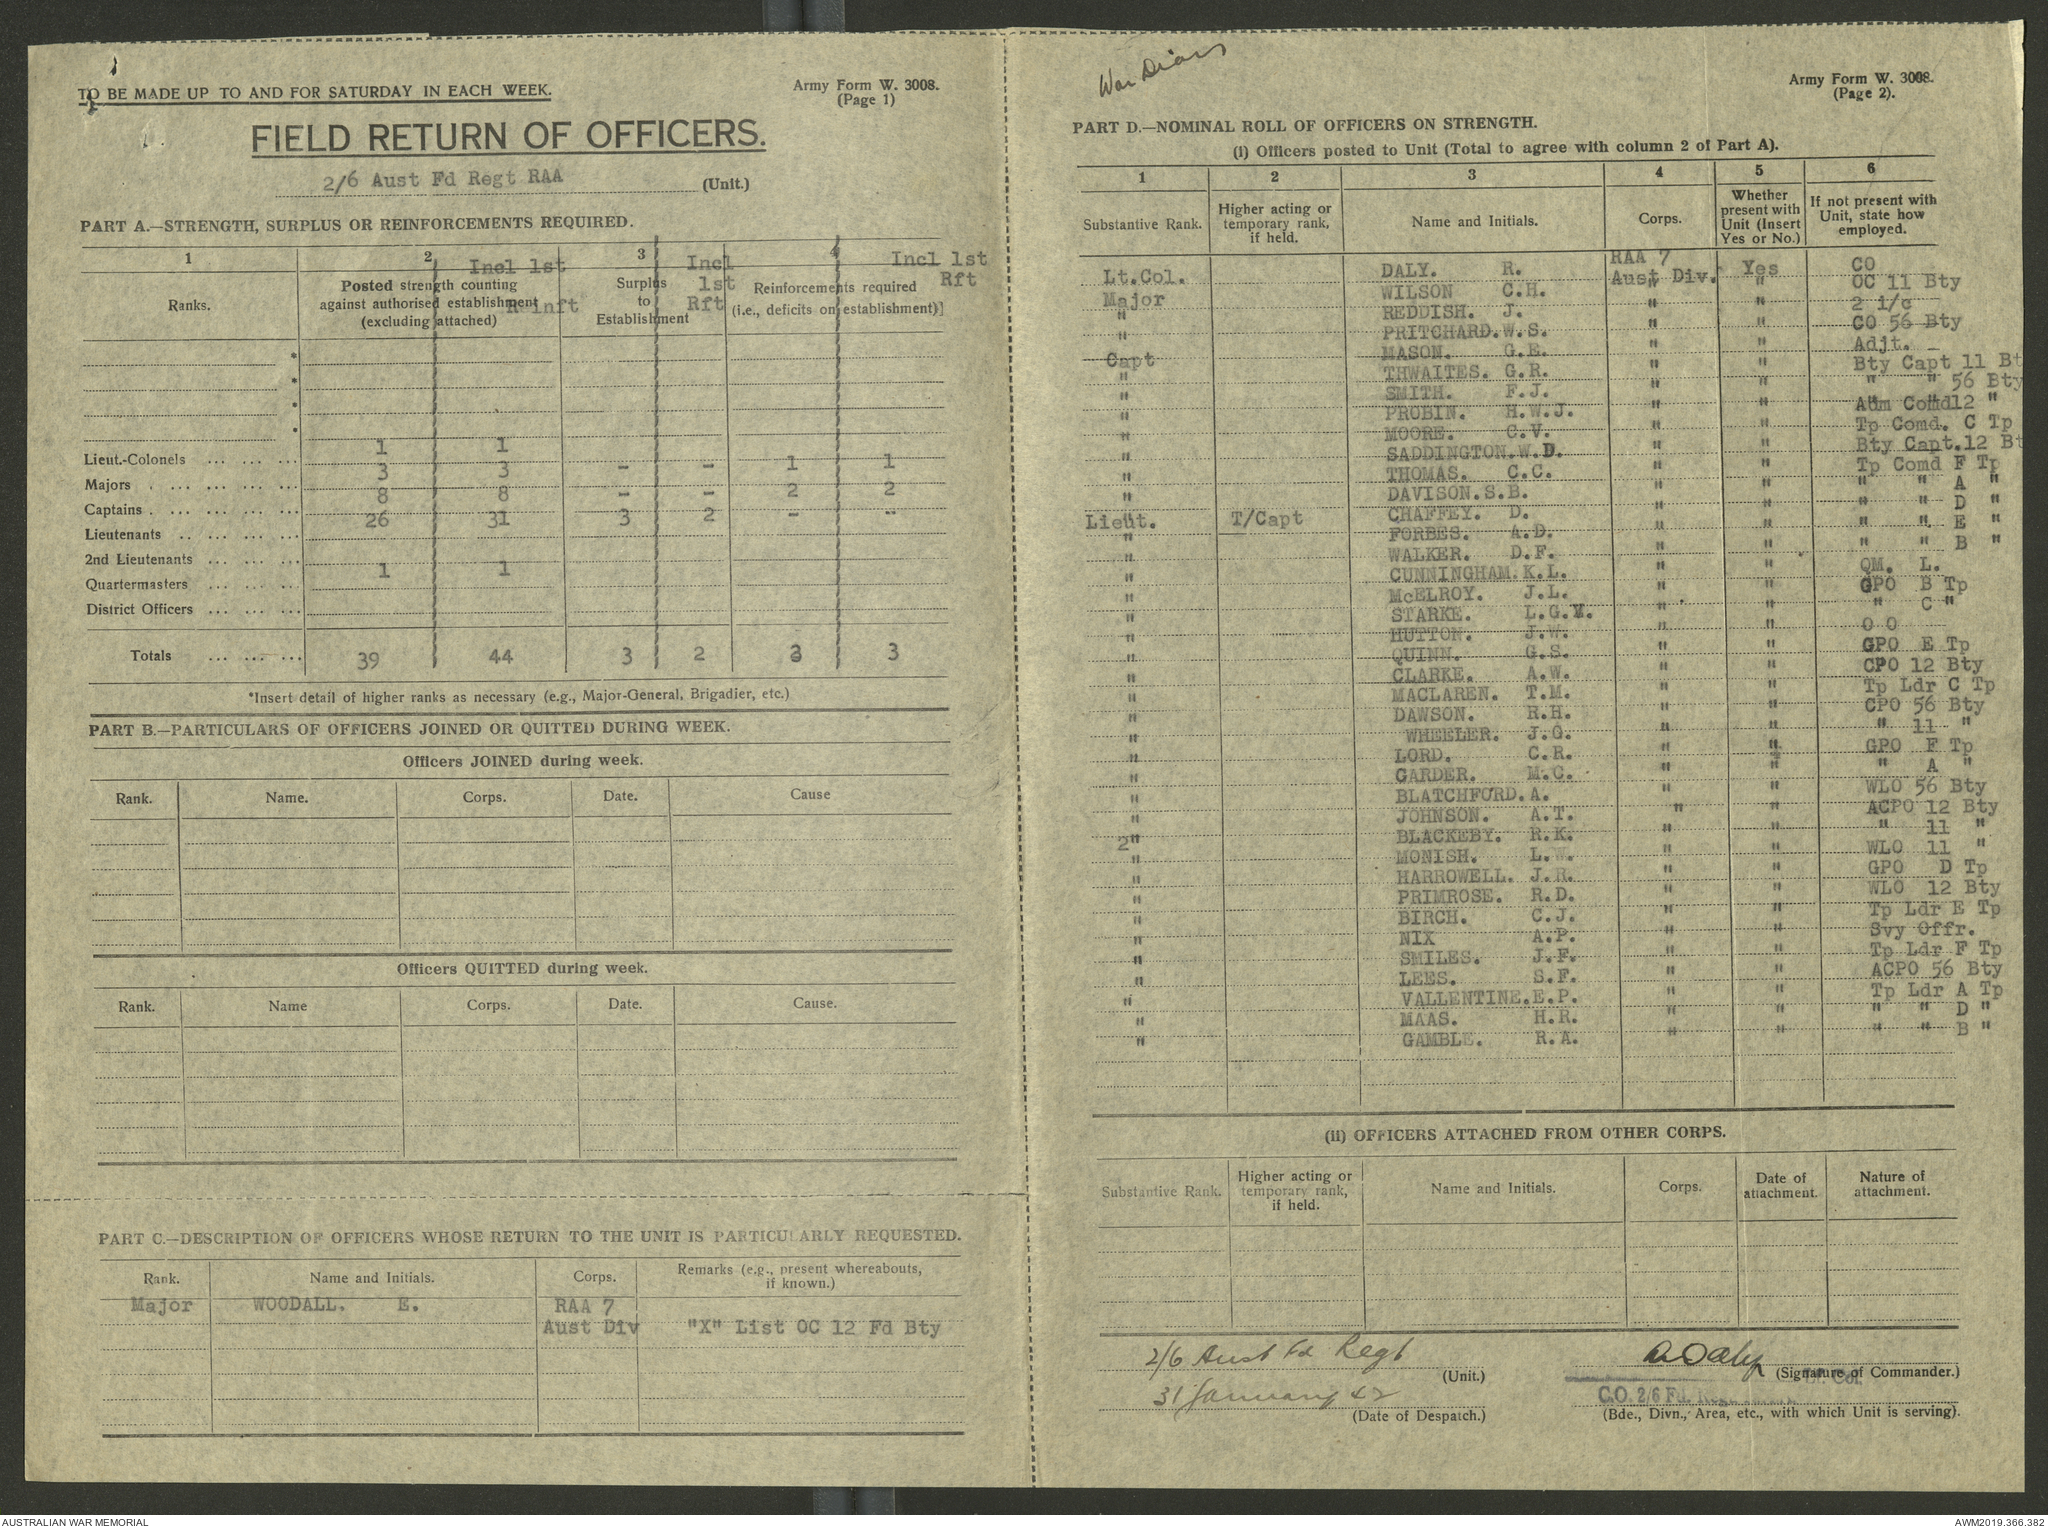 War Diary
TO BE MADE UP TO AND FOR SATURDAY IN EACH WEEK.
Army Form W. 3008.
(Page 1)
FIELD RETURN OF OFFICERS.
2/6 Aust Fd Regt RAA (Unit.)
PART A.—STRENGTH, SURPLUS OR REINFORCEMENTS REQUIRED.
1 2 3 4
Ranks.
Posted strength counting
against authorised establishment
(excluding attached)
Incl 1st
Reinft
Surplus
to
Establishment
Incl
1st
Rft
Reinforcements required
(i.e., deficits on establishment)]
Incl 1st
Rft
*
*
*
*
1 1
Lieut.-Colonels ... ... ...
3 3 - - 1 1
Majors . ... ... ... ...
8 8 - - 2 2
Captains . ... ... ... ...
26 31 3 2 - -
Lieutenants .. ... ... ...
2nd Lieutenants ... ... ...
1 1
Quartermasters ... ... ...
District Officers ... ... ...
Totals ... ... ... 39 44 3 2 3 3
*Insert detail of higher ranks as necessary (e.g., Major-General, Brigadier, etc.)
PART B.—PARTICULARS OF OFFICERS JOINED OR QUITTED DURING WEEK.
Officers JOINED during week.
Rank. Name. Corps. Date. Cause
Officers QUITTED during week.
Rank. Name Corps. Date. Cause.
PART C.—DESCRIPTION OF OFFICERS WHOSE RETURN TO THE UNIT IS PARTICULARLY REQUESTED.
Rank. Name and Initials. Corps. Remarks (e.g., present whereabouts,
if known.)
Major WOODALL. E. RAA 7
Aust Div "X" List OC 12 Fd Bty
Army Form W. 3008.
(Page 2).
PART D.—NOMINAL ROLL OF OFFICERS ON STRENGTH.
(i) Officers posted to Unit (Total to agree with column 2 of Part A).
1 2 3 4 5 6
Substantive Rank.
Higher acting or
temporary rank,
if held.
Name and Initials.
Corps.
Whether
present with
Unit (Insert
Yes or No.)
If not present with
Unit, state how
employed.
RAA 7
Lt.Col. DALY. R. Aust Div. Yes CO
Major WILSON C.H. " " OC 11 Bty
" REDDISH. J. " " 2 i/c
" PRITCHARD.W.S. " " CO 56 Bty
Capt MASON. G.E. " " Adjt.
" THWAITES. G.R. " " Bty Capt 11 Bt
" SMITH. F.J. " " " " 56 Bty
" PROBIN. H.W.J. " " Adm Comd12 "
" MOORE. C.V. " " Tp Comd. C Tp
" SADDINGTON.W.D. " " Bty Capt.12 Bt
" THOMAS. C.C. " " Tp Comd F Tp
" DAVISON.S.B. " " " " A "
Lieut. T/Capt CHAFFEY. D. " " " " D "
" FORBES. A.D. " " " " E "
" WALKER. D.F. " " " " B "
" CUNNINGHAM.K.L. " " QM. L.
" McELROY. J.L. " " GPO B Tp
" STARKE. L.G.V. " " " C "
" HUTTON. J.W. " " O O
" QUINN. G.S. " " GPO E Tp
" CLARKE. A.W. " " CPO 12 Bty
" MACLAREN. T.M. " " Tp Ldr C Tp
" DAWSON. R.H. " " CPO 56 Bty
" WHEELER. J.G. " " " 11 "
" LORD. C.R. " " GPO F Tp
" GARDER. M.C. " " " A "
" BLATCHFORD.A. " " WLO 56 Bty
" JOHNSON. A.T. " " ACPO 12 Bty
2" BLACKEBY. R.K. " " " 11 "
" MONISH. L.W. " " WLO 11 "
" HARROWELL. J.R. " " GPO D Tp
" PRIMROSE. R.D. " " WLO 12 Bty
" BIRCH. C.J. " " Tp Ldr E Tp
" NIX A.P. " " Svy Offr.
" SMILES. J.F. " " Tp Ldr F Tp
" LEES. S.F. " " ACPO 56 Bty
" VALLENTINE.E.P. " " Tp Ldr A Tp
" MAAS. H.R. " " " " D "
" GAMBLE. R.A. " " " " B "
(ii) OFFICERS ATTACHED FROM OTHER CORPS.
Substantive Rank.
Higher acting or
temporary rank,
if held.
Name and Initials.
Corps.
Date of
attachment.
Nature of
attachment.
2/6 Aust Fd Regt (Unit.)
31 January 42 (Date of Despatch.)
R Daly Lt Col. (Signature of Commander.)
C.O. 2/6 Fd. Regt.
(Bde., Divn., Area, etc., with which Unit is serving).
AUSTRALIAN WAR MEMORIAL
AWM2019.366.382